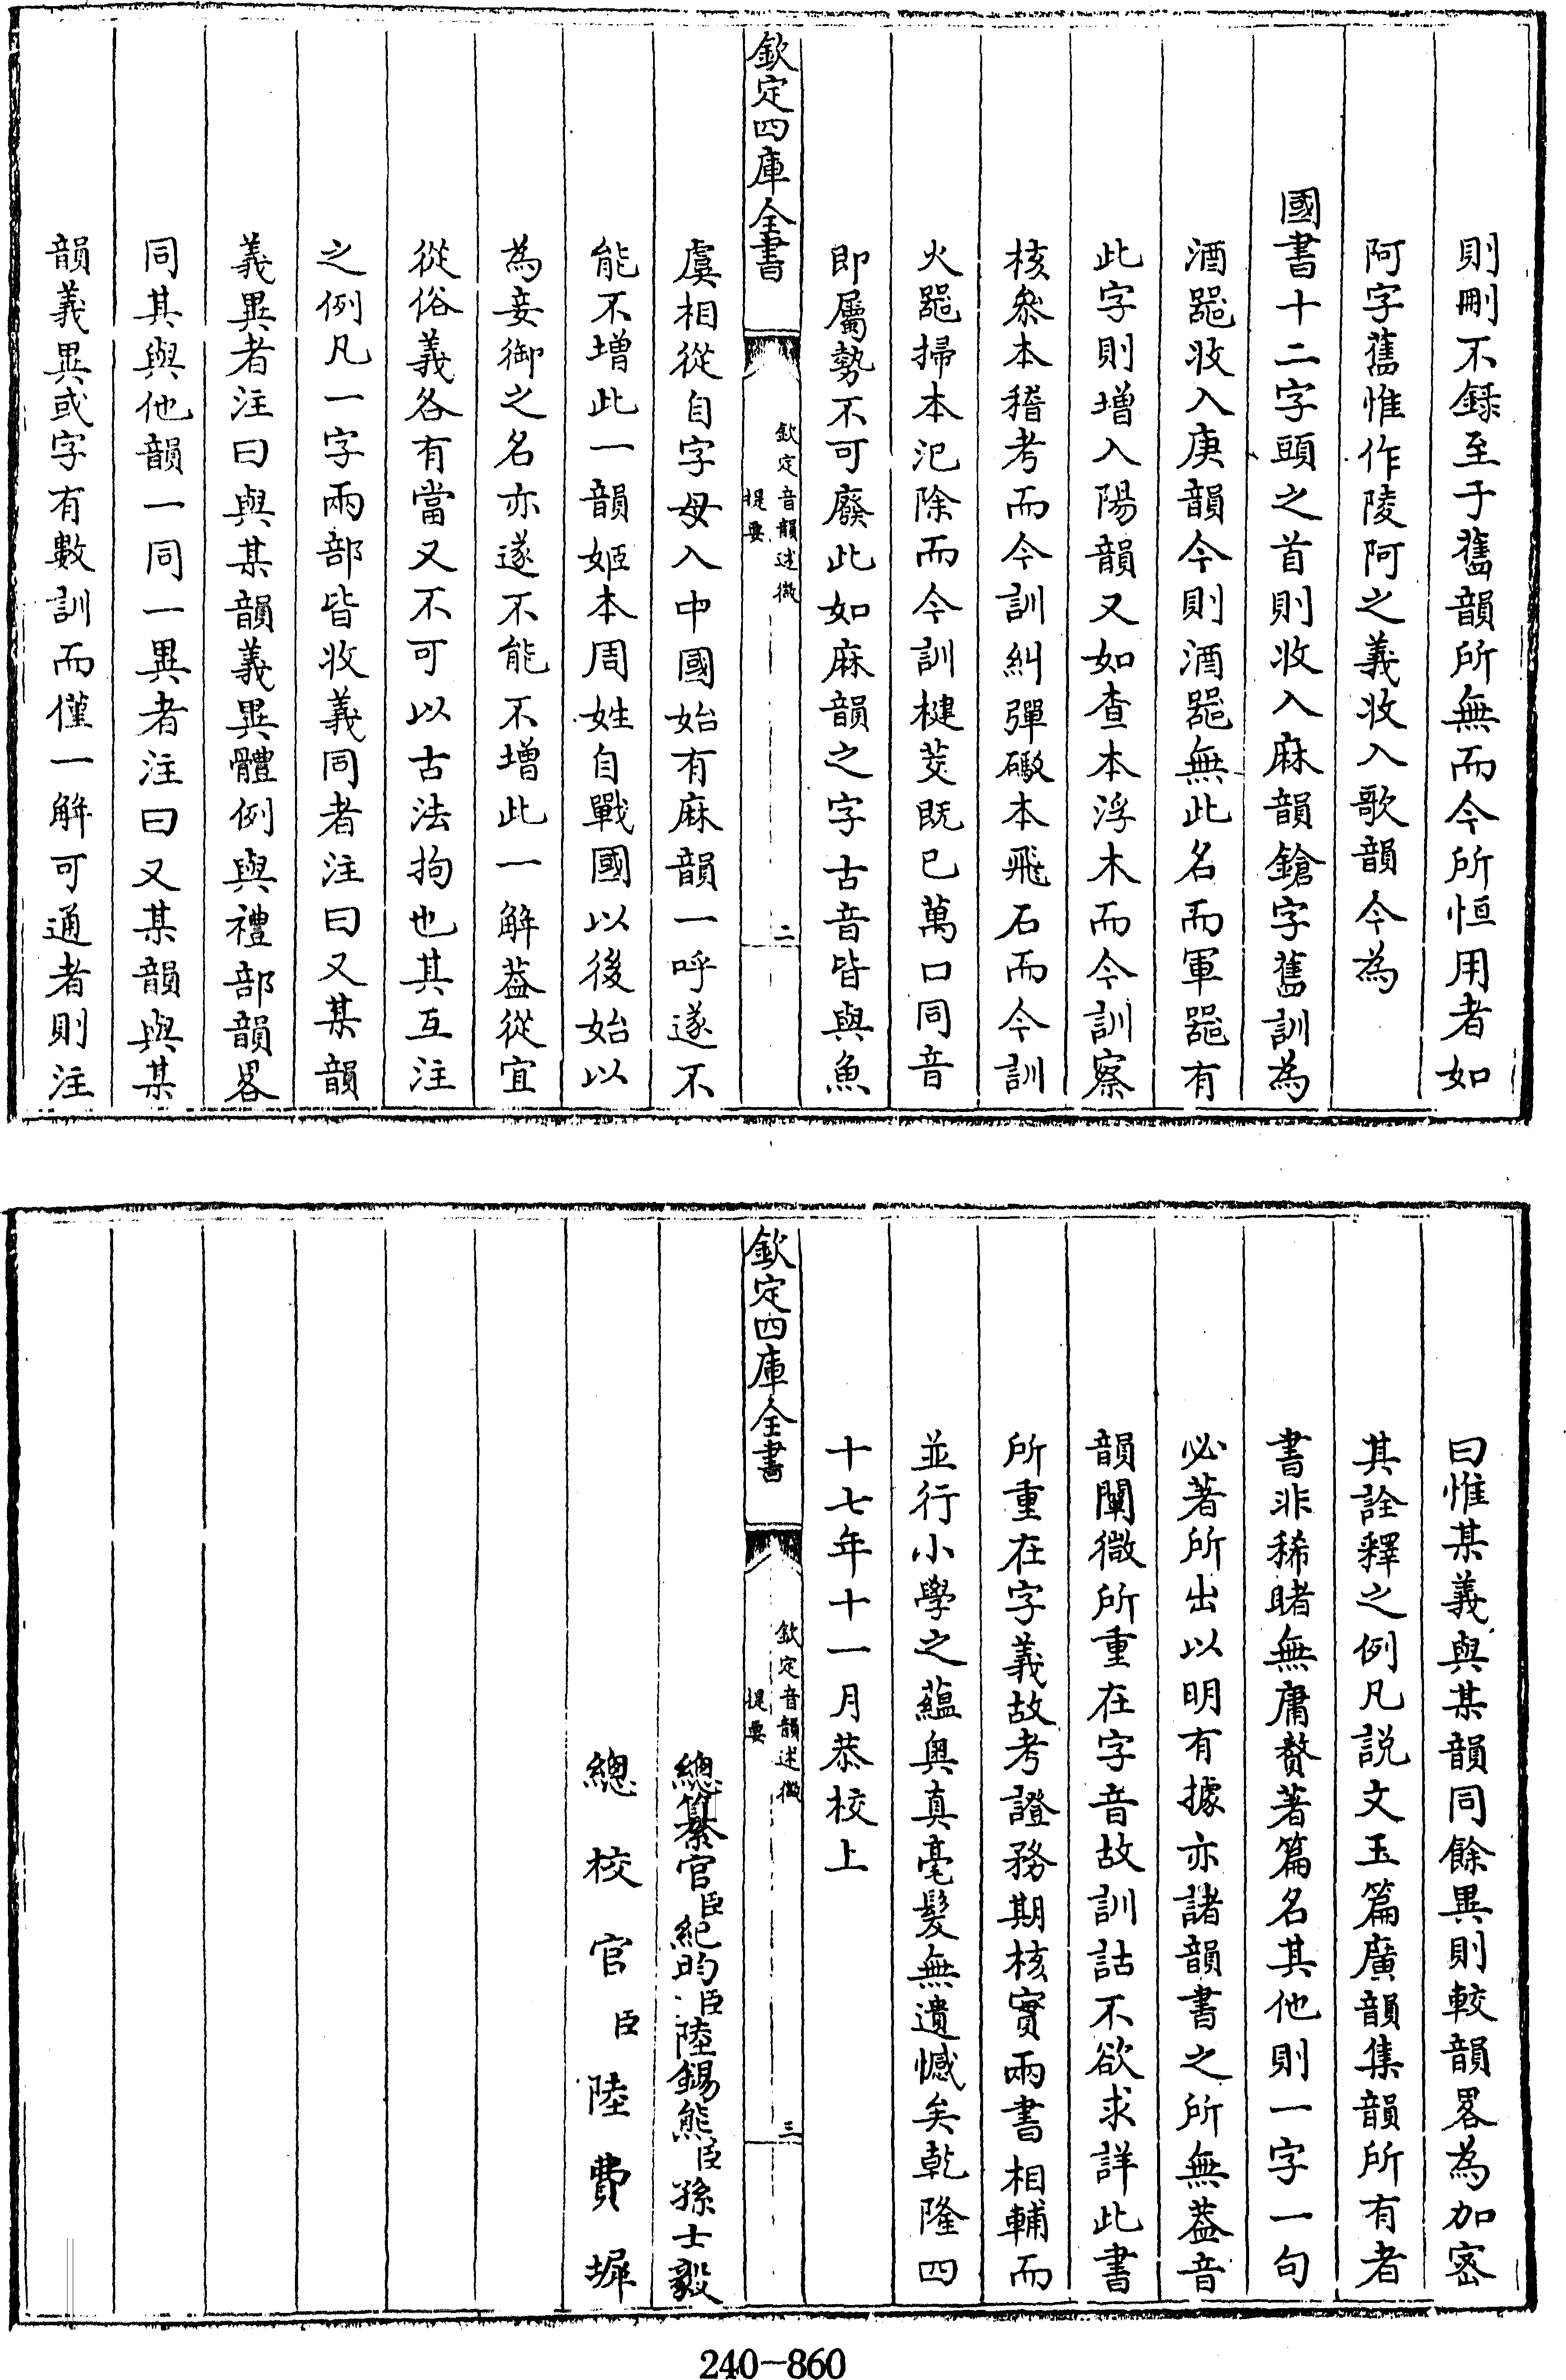 則刪不録至于舊韻所無而今所恒用者如
阿字舊惟作陵阿之義收入歌韻今為
國書十二字頭之首則收入麻韻鎗字舊訓為
酒噐收入庚韻今則酒噐無此名而軍噐有
此字則增入陽韻又如查本浮木而今訓察
核叅本稽考而今訓糾彈礮本飛石而今訓
火噐掃本氾除而今訓楗茭既已萬口同音
即屬勢不可廢此如麻韻之字古音皆與魚
欽定四庫全書
欽定音韻述微
提要
二
虞相從自字母入中國始有麻韻一呼遂不
能不增此一韻姬本周姓自戰國以後始以
為妾御之名亦遂不能不增此一解葢從宜
從俗義各有當又不可以古法拘也其互注
之例凡一字兩部皆收義同者注曰又某韻
義異者注曰與某韻義異體例與禮部韻畧
同其與他韻一同一異者注曰又某韻與某
韻義異或字有數訓而僅一解可通者則注
曰惟某義與某韻同餘異則較韻畧為加宻
其詮釋之例凡説文玉篇廣韻集韻所有者
書非稀睹無庸贅著篇名其他則一字一句
必著所出以明有據亦諸韻書之所無葢音
韻闡微所重在字音故訓詁不欲求詳此書
所重在字義故考證務期核實兩書相輔而
並行小學之蘊奥真毫髮無遺憾矣乾隆四
十七年十一月恭校上
欽定四庫全書
欽定音韻述微
提要
三
總纂官臣紀昀臣陸錫熊臣孫士毅
總校官臣陸費墀
240-860